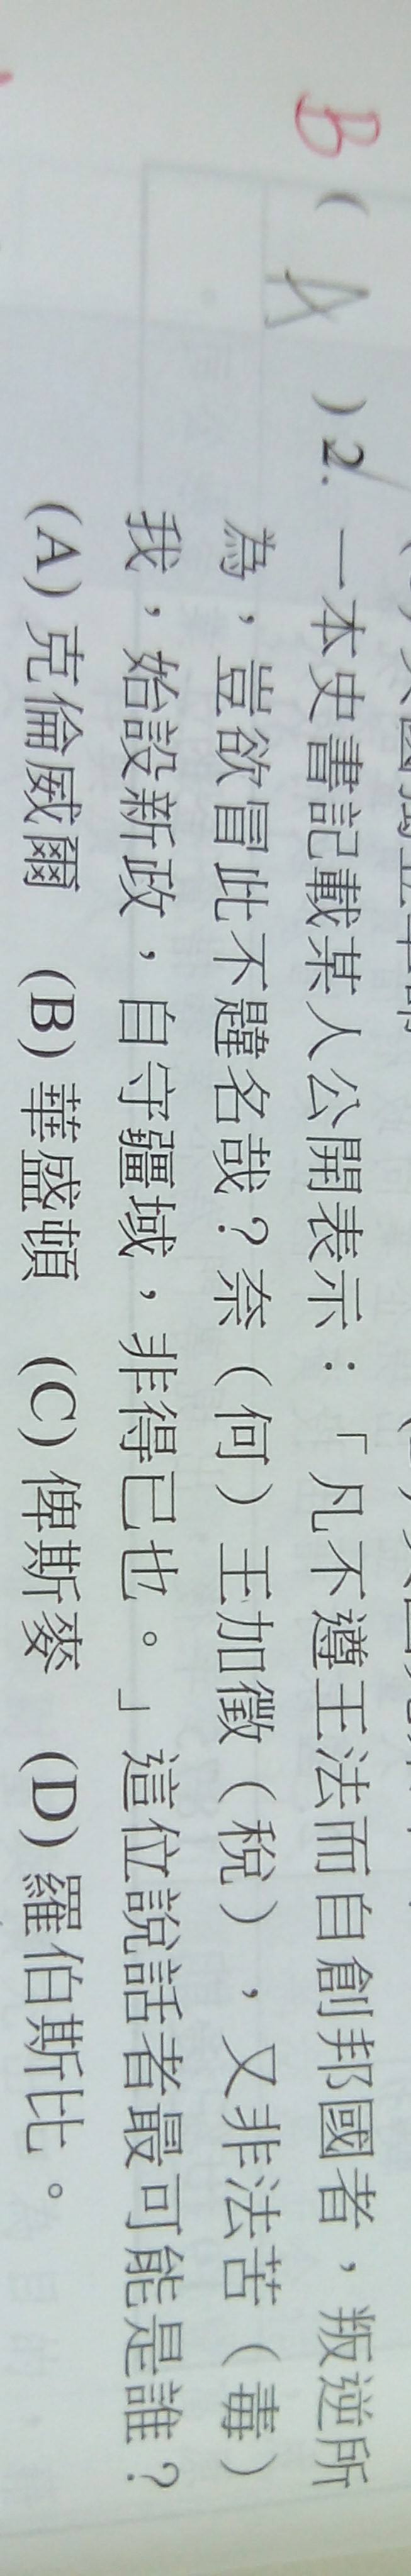 B ( A ) 2. 一本史書記載某人公開表示：「凡不遵王法而自創邦國者，叛逆所
為，豈欲冒此不韙名哉？奈（何）王加徵（稅），又非法苦（毒）
我，始設新政，自守疆域，非得已也。」這位說話者最可能是誰？
(A) 克倫威爾 (B) 華盛頓 (C) 俾斯麥 (D) 羅伯斯比。